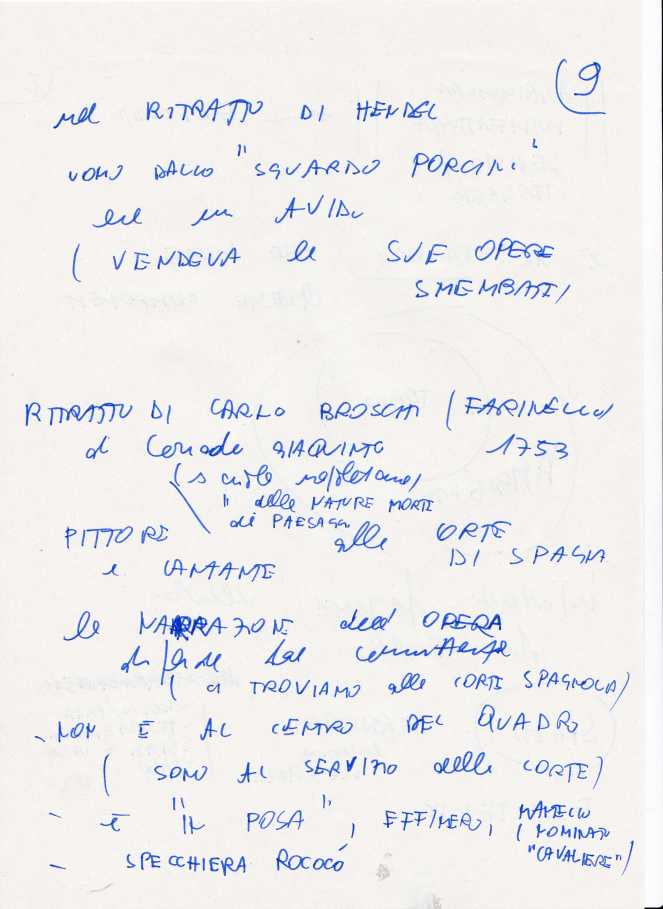 9
nel RITRATTO DI HENDEL
UOMO DALLO "SGUARDO PORCINI"
era un AVIDO
( VENDEVA le SUE OPERE
SMEMBATI)
RITRATTO DI CARLO BROSCHI (FARINELLO)
di Corrado GIAQUINTO 1753
(scuola napoletana)
" delle NATURE MORTE
di PAESAGGI
PITTORE alla CORTE
DI SPAGNA
e CANTANTE
la NARRAZIONE dell' OPERA
dipende dal committente
( CI TROVIAMO alla CORTE SPAGNOLA)
- NON È AL CENTRO DEL QUADRO
( SONO AL SERVIZIO della CORTE)
- È "IN POSA", EFFIMERO, MANTELLO
( NOMINATO
"CAVALIERE")
- SPECCHIERA ROCOCÓ